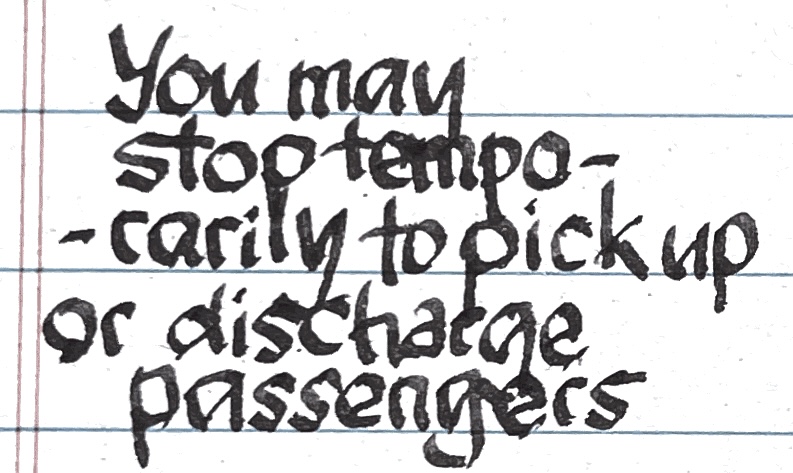 You may
stop tempo-
-rarily to pick up
or discharge
passengers